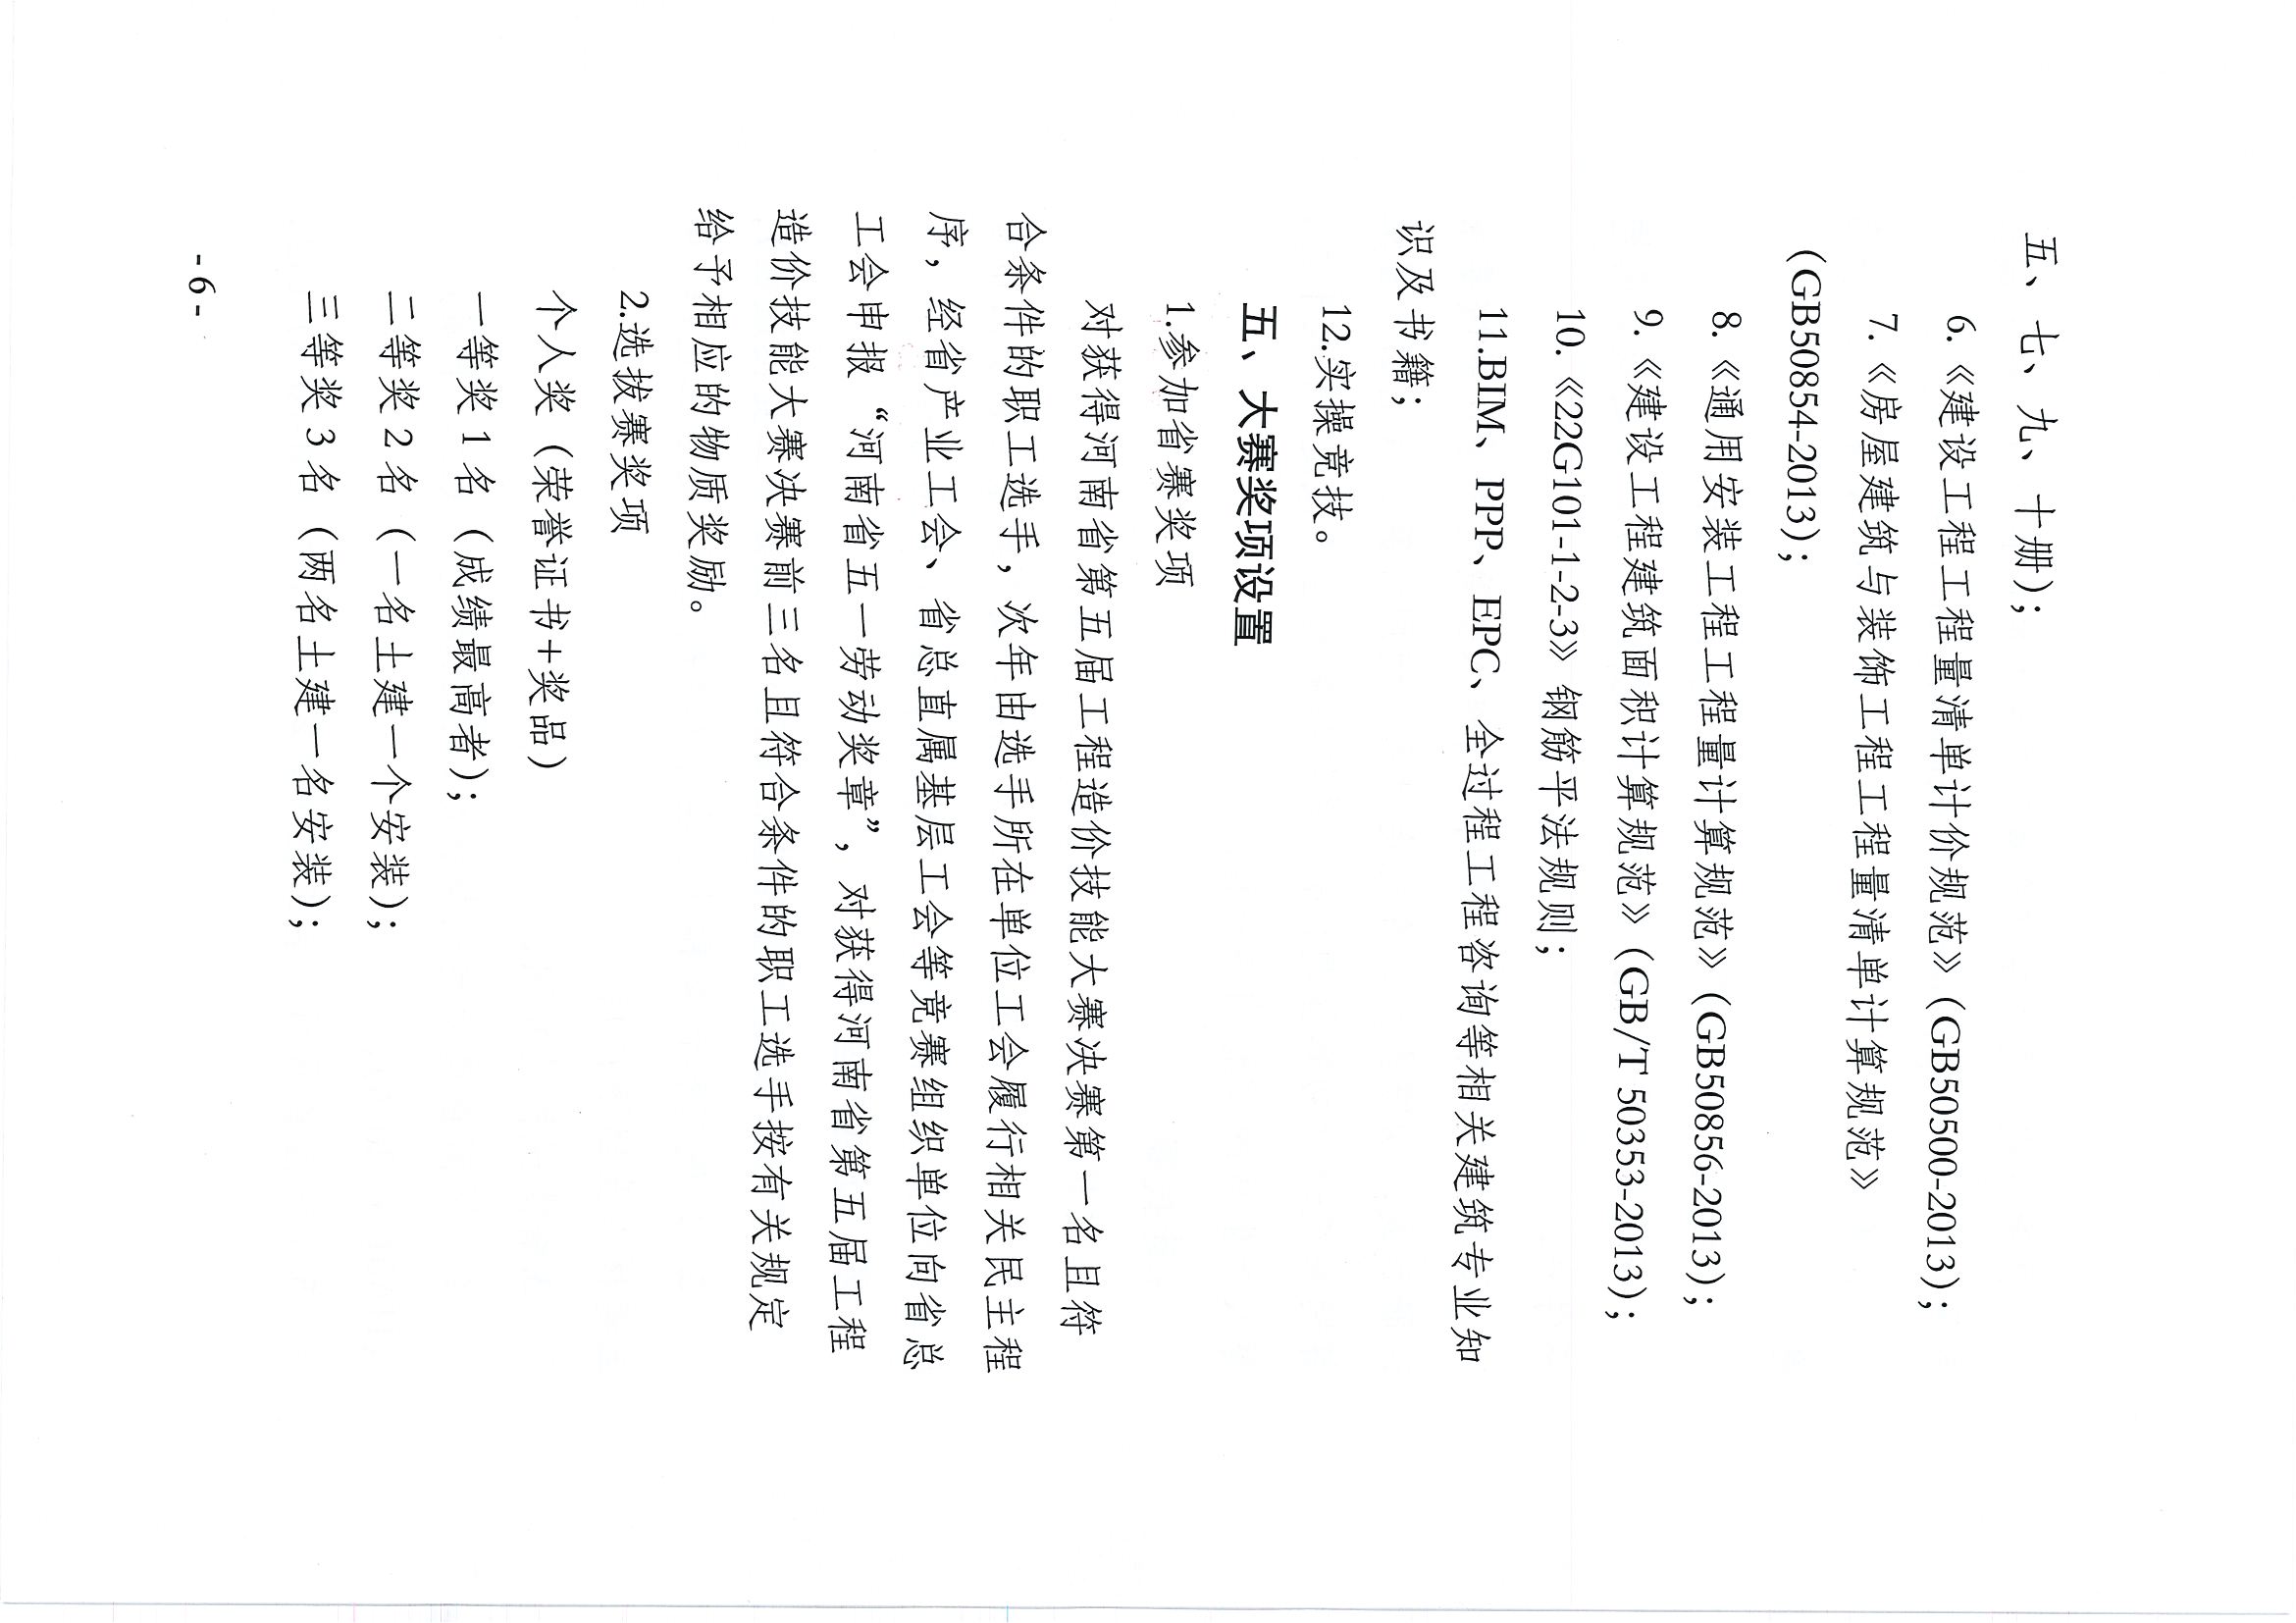 五、七、九、十册）；
6.《建设工程工程量清单计价规范》（GB50500-2013）；
7.《房屋建筑与装饰工程工程量清单计算规范》
（GB50854-2013）；
8.《通用安装工程工程量计算规范》（GB50856-2013）；
9.《建设工程建筑面积计算规范》（GB/T 50353-2013）；
10.《22G101-1-2-3》钢筋平法规则；
11.BIM、PPP、EPC、全过程工程咨询等相关建筑专业知
识及书籍；
12.实操竞技。
五、大赛奖项设置
1.参加省赛奖项
对获得河南省第五届工程造价技能大赛决赛第一名且符
合条件的职工选手，次年由选手所在单位工会履行相关民主程
序，经省产业工会、省总直属基层工会等竞赛组织单位向省总
工会申报“河南省五一劳动奖章”，对获得河南省第五届工程
造价技能大赛决赛前三名且符合条件的职工选手按有关规定
给予相应的物质奖励。
2.选拔赛奖项
个人奖（荣誉证书+奖品）
一等奖 1 名（成绩最高者）；
二等奖 2 名（一名土建一个安装）；
三等奖 3 名（两名土建一名安装）；
- 6 -